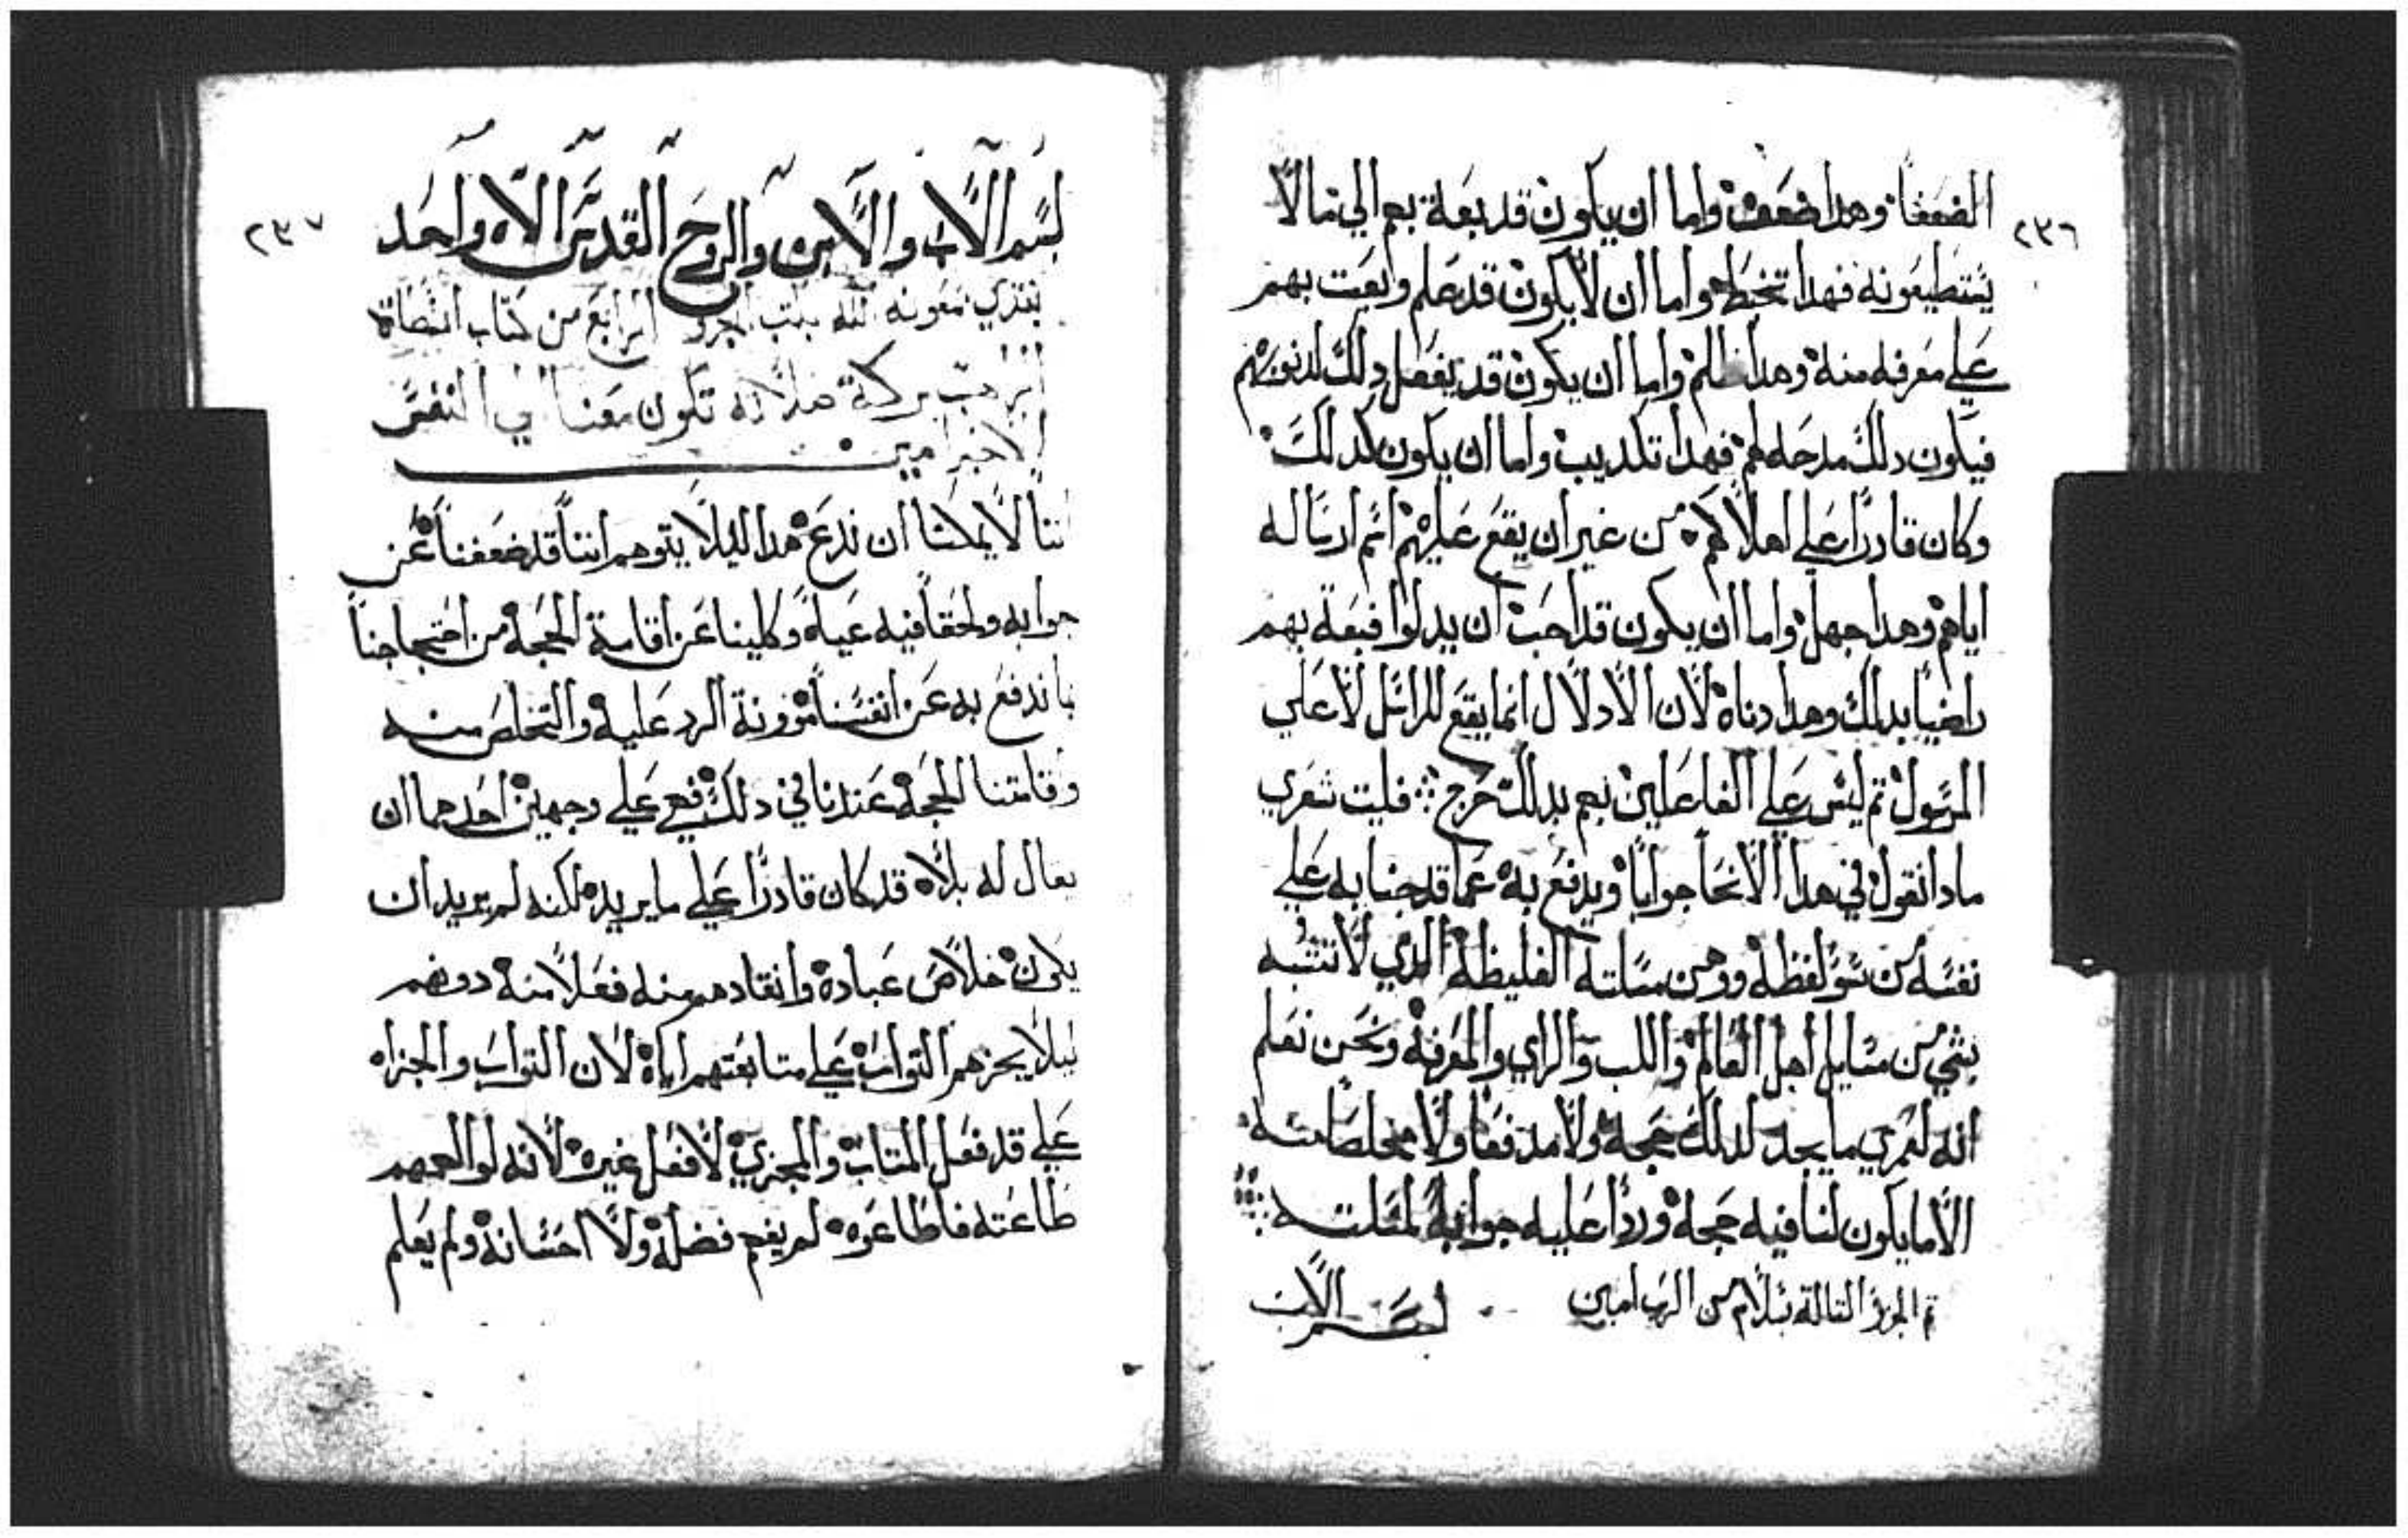 ٢٣٦
الضعفا وهدا ضعف واما ان يكون قد بعة بهم الي ما لا
يستطيعونه فهدا تخبط واما ان لا يكون قد علم وابعت بهم
علي معرفه منه وهدا ظلم واما ان يكون قد يفصل دلك لدنوبهم
فيكون دلك مدحله لهم فهدا تكديب واما ان يكون كدلك
وكان قادرا علي اهلاكهم من غير ان يقع عليهم اتم ارساله
اياهم وهدا جهل واما ان يكون قد احب ان يدلوا فبعة بهم
راضيا بدلك وهدا دناه لان الادلال انما يقع للراسل لا علي
المرسول تم ليس علي الفاعلين بهم بدلك حرج فليت شعري
مادا نقول في هدا الانحا جوابا ويدفع به عما قد جنا به علي
نفسه من سو لفظه ووهن مسلته الغليظة الدي لا تشبه
بشي من مسايل اهل العالم واللب والراي والمعرفة ونحن نعلم
انه لعمري ما يجد لدلك حجة ولا مدفعا ولا مخلصا منه
الا ما يكون لنا فيه حجة وردا عليه جوابه لمسلته
تم الجزو التالة بسلام من الرب امين
بسم الاب
٢٣٧
بسم الاب والابن والروح القدس الاه واحد
نبتدي بمعونة الله بكتب الجزو الرابع من كتاب
الراهب بركة صلاته تكون معنا الي النفس
الاخير امين
اننا لا يمكننا ان ندع هدا ليلا يتوهم اننا قد ضعفنا عن
جوابه ولحقنا فيه عياة وكلينا عن اقامة الحجة من احتجاجنا
بما ندفع به عن انفسنا موونة الرد عليه والتخلص منه
وقامتنا الحجة عندنا في دلك فهي علي وجهين احدهما ان
يقال له بلاه قد كان قادرا علي ما يريده لكنه لم يريد ان
يكون خلاص عباده وانقادهم منه فعلا منه دونهم
ليلا يحزهم التواب علي متابعتهم اياه لان التواب والجزاه
علي قد فعل المتاب والمجزي لا فعل غيره لانه لو الهمهم
طاعته فاطاعوه لم يفهم فضله ولا احسانه ولم يعلم